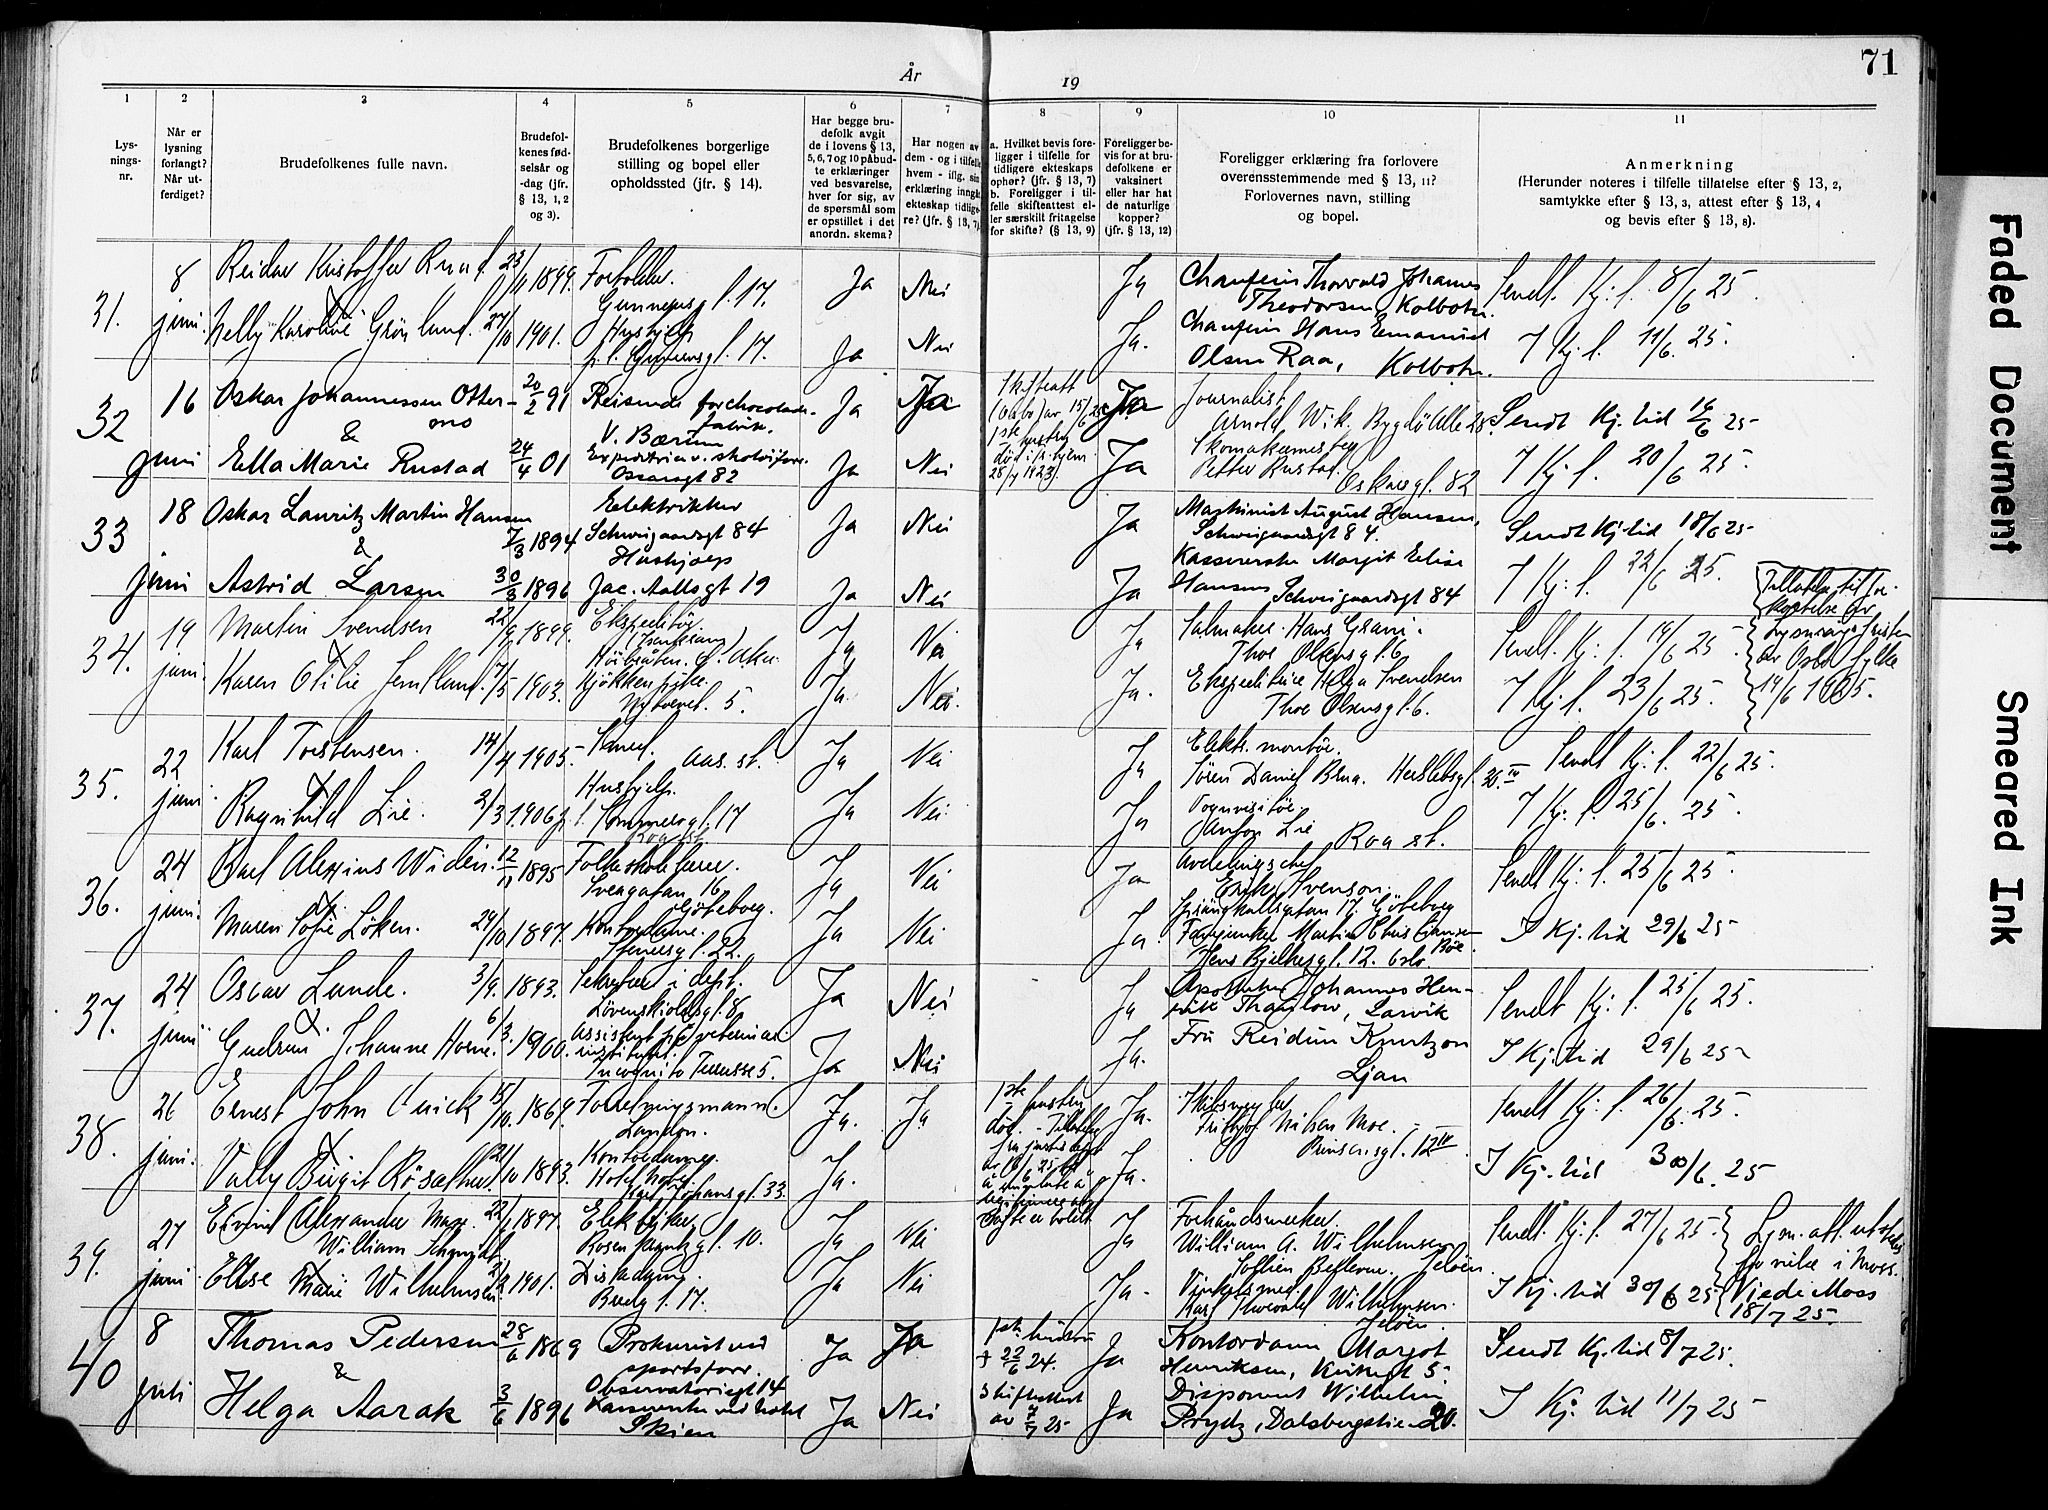 71
År
19
1
2
3
4
5
6
7
8
9
10
11
Lys-
nings-
nr.
Når er
lysning
forlangt?
Når ut-
ferdiget?
Brudefolkenes fulle navn.
Brudefol-
kenes fød-
selsår og
-dag (jfr.
§ 13, 1, 2
og 3).
Brudefolkenes borgerlige
stilling og bopel eller
opholdssted (jfr. § 14).
Har begge bru-
defolk avgit
de i lovens § 13,
5, 6, 7 og 10 påbud-
te erklæringer
ved besvarelse,
hver for sig, av
de spørsmål som
er opstillet i det
anordn. skema?
Har nogen av
dem - og i tilfelle
hvem - iflg. sin
erklæring inngåt
ekteskap tidlige-
re? (jfr. § 13, 7)
a. Hvilket bevis fore-
ligger i tilfelle for
tidligere ekteskaps
ophør? (jfr. § 13, 7)
b. Foreligger i til-
felle skifteattest el-
ler særskilt fritagelse
for skifte? (§ 13, 9)
Foreligger be-
vis for at bru-
defolkene er
vaksinert
eller har hat
de naturlige
kopper?
(jfr. § 13, 12)
Foreligger erklæring fra forlovere
overensstemmende med § 13, 11?
Forlovernes navn, stilling
og bopel.
Anmerkning
(Herunder noteres i tilfelle tillatelse efter § 13, 2,
samtykke efter § 13, 3, attest efter § 13, 4
og bevis efter § 13, 8).
31.
8
juni.
Reidar Kristoffer Ruud 23/11 1899.
Gunnersgt. 17.
Ja
Nei
Ja
Chauffeur Thorvald Johannes
Theodorsen, Kolbotn.
Sendt. Kj. t. 8/6 25.
&
Nelly Karoline Grønlund. 27/10 1901.
Hushjelp
17.
Ja
Nei
Ja.
Chauffeur Hans Emanuel
Olsen Raa, Kolbotn.
I Kj. t. 11/6. 25.
32
16
juni
Oskar Johannessen Otter-
mo
20/2 91
Reisende for chocolade-
fabrik.
V. Bærum
Ja
Ja
Skifteatt
av 15/6 25
1ste hustru
død
28/7 1923.
Ja
Journalist
Arnold Wik. Bygdø Alle 28.
Sendt Kj. tid 16/6 25
&
Ella Marie Rustad 24/4 01
Oscarsgt 82
Ja
Nei
Ja
Skomakermester
Petter Rustad. Oskarsgt. 82
I Kj. t. 20/6 25.
33
18
juni
Oskar Lauritz Martin Hansen
7/3 1894
Elektriker
Schweigaardsgt 84
Ja
Nei
Ja
Maskinist August Hansen,
Schweigaardsgt 84.
Sendt Kj. tid 18/6 25
&
Astrid Larsen 30/3 1896
Hushjælp
Jac. Aallsgt 19
Ja
Nei
Ja
Kassererske Margit Elise
Hansen Schweigaardsgt 84
I Kj. t. 22/6 25.
34.
19
juni.
Martin Svendsen 22/9 1899.
Ekspeditør.
Ja
Nei
Ja
Salmaker Hans Grani.
Thv. Olsensgt. 6
Sendt. Kj. t. 19/6 25.
Tillatelse til for-
kortelse av
Lysningsfristen
av Oslo fylke
19/6 1925.
&
Karen Otilie Jemtland. 17/5 1903.
Kjøkkenpike.
Nytorvet. 5.
Ja.
Nei.
Ja.
Ekspeditrise Helga Svendsen
Thv. Olsensgt. 6.
I Kj. t. 23/6 25.
35.
22
juni.
Karl Torstensen. 14/4 1905.
Smed. Aas. st.
Ja
Nei
Ja
Elektr. montør.
Søren Daniel Brua. Herslebsgt. 20 IV
Sendt Kj. t. 22/6 25.
&
Ragnhild Lie. 2/3 1906
Hushjelp.
Sommersgt. 17
Roa st.
Ja
Nei
Ja
Vognvisitør
Anton Lie Roa st.
I Kj. t. 25/6. 25.
36.
24
juni.
Karl Alexius Widén. 12/11 1895
Folkeskolelærer.
Sveagatan 16
Göteborg.
Ja
Nei
Ja
Avdelingschef
Erik Svenson.
17. Göteborg
Sendt Kj. t. 25/6 25.
&
Maren Sofie Løken. 29/10 1897.
Kontordame.
22.
Ja
Nei
Ja.
Martin Chris
Bøe.
Jens Bjelkesgt. 12. Oslo
I Kj. tid 29/6 25
37.
24
juni
Oscar Lunde. 3/9. 1893.
Sekretær i dept.
Løvenskioldsgt. 8
Ja
Nei
Ja
Apotheker Johannes Hen-
rik Thaulow, Larvik
Sendt Kj. t. 25/6 25.
&
Gudrun Johanne Horne. 6/3. 1900.
Assistent ved veterinær-
institutet.
Incognito Terrasse 5.
Ja
Nei
Ja.
Fru Reidun Knutzon
Ljan
I Kj. tid 29/6 25
38.
26
juni.
Ernest John Quick 15/10. 1869.
Forretningsmann.
London.
Ja.
Ja
1ste hustru
død. - Tillatelse
fra justisdept
Ja.
Skibsmegler
Fridtjof Nilsen Moe.
Prinsensgt. 12 IV
Sendt Kj. t. 26/6. 25.
&
Vally Birgit Røsæther. 21/10 1893.
Kontordame.
Hotel Norge
Karl Johansgt. 33.
Ja.
Ja.
I Kj. tid 30/6. 25
39.
27
juni
Eivind Alexander Marx
William Schmidt. 22/1 1897.
Elektriker
Rosenkrantzgt. 10.
Ja
Nei
Ja
Forhåndsmerker.
William A. Wilhelmsen
Bellevue. Jeløen.
Sendt. Kj. t. 27/6 25.
Lysn. att. utstedt
for vielse i Moss.
&
Ellse Marie Wilhelmsen 1901.
17.
Ja
Nei
Ja.
Karl Thorvald Wilhelmsen.
Jeløen.
I Kj. tid 30/6 25
Viet i Moss
18/7 25.
40
8
juli
Thomas Pedersen 28/6 1869
Prokurist ved
sportsforr.
Observatoriegt 14
Ja
Ja
1ste hustru
† 22/6 24.
Ja
Kontordame Margot
Henriksen, Kirkegt 5.
Sendt Kj. tid 8/7 25.
&
Helga Aarak 3/6 1896
Kassererske ved hotel
Skien
Ja
Nei
Skifteattest
av 7/7 25
Ja
Disponent Wilhelm
Prydz, Dalsbergstien 20.
I Kj. tid 11/7 25
Faded Document
Smeared Ink